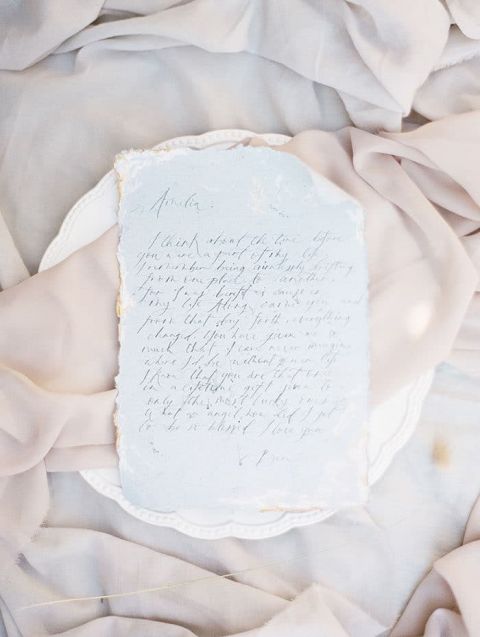 Amelia,
I think about the time before
you were a part of my life.
I remember being aimlessly drifting
from one place to another.
my life. Along came you and
from that day forth, everything
changed. You have given me so
much that I can never imagine
what I'd be without you in
I know that you are that once
in a lifetime gift given to
only the most lucky
What an angel, how did I get
to be so blessed. I love you